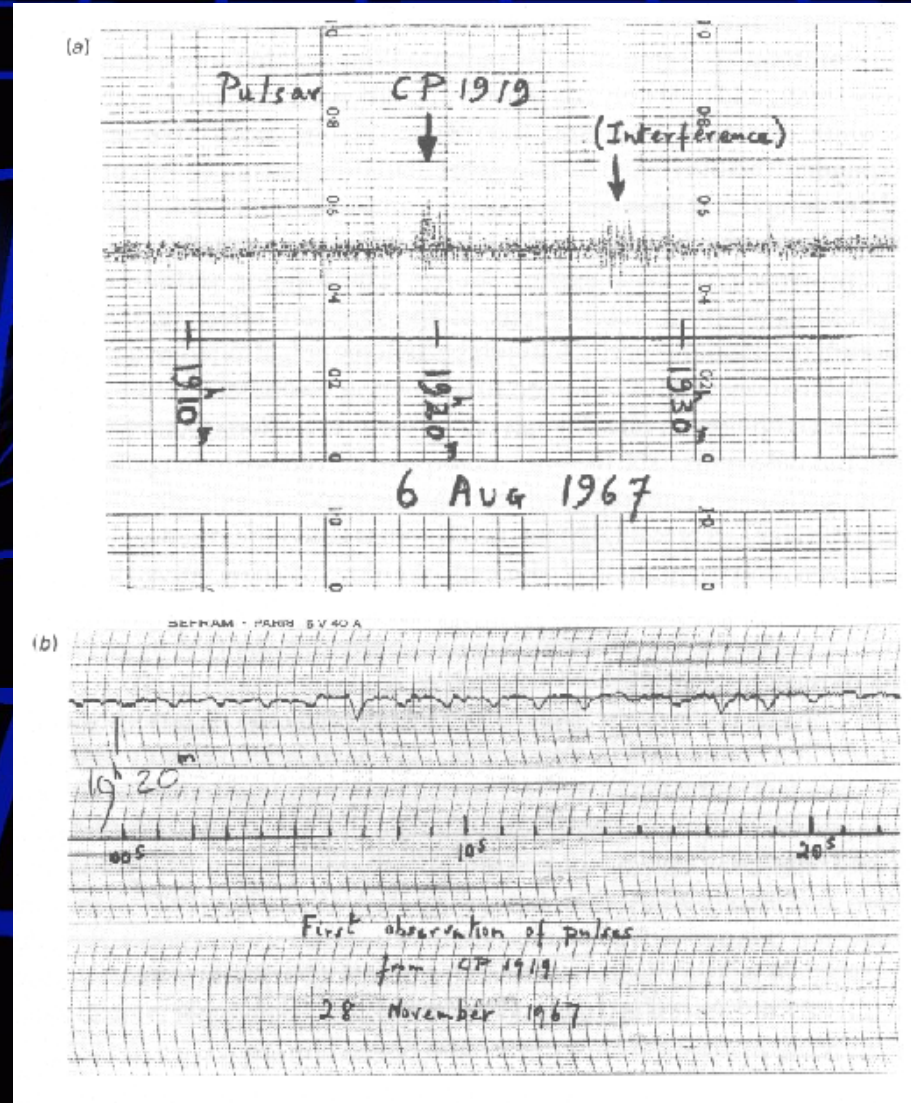 (a)
1.0 1.0
Pulsar CP 1919
0.8 0.8
(Interference)
0.6 0.6
0.4 0.4
0.2 0.2
19h10m 19h20m 19h30m
0 0
6 AUG 1967
1.0 1.0
0 0
SEFRAM - PARIS 6 V 40 A
(b)
19h 20m
00s 10s 20s
First observation of pulses
from CP 1919
28 November 1967